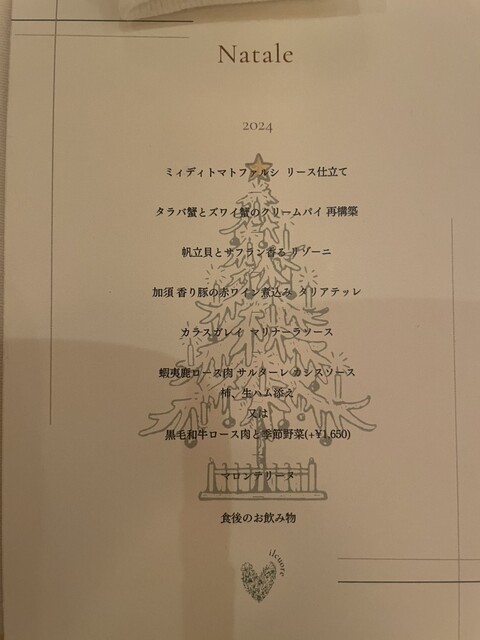 Natale
2024
ミィディトマトファルシ リース仕立て
タラバ蟹とズワイ蟹のクリームパイ 再構築
帆立貝とサフラン香る リゾーニ
加須 香り豚の赤ワイン煮込み タリアテッレ
カラスガレイ マリナーラソース
蝦夷鹿ロース肉 サルターレ カシスソース
柿、生ハム添え
又は
黒毛和牛ロース肉と季節野菜(+¥1,650)
マロンテリーヌ
食後のお飲み物
ilcuore